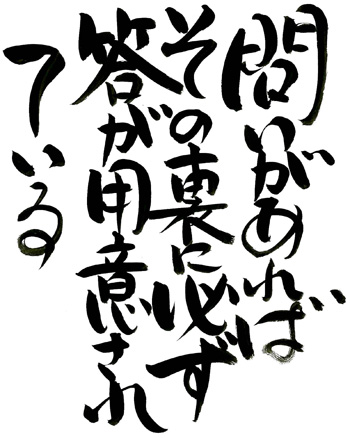 問いがあれば
その裏に必ず
答が用意され
ている